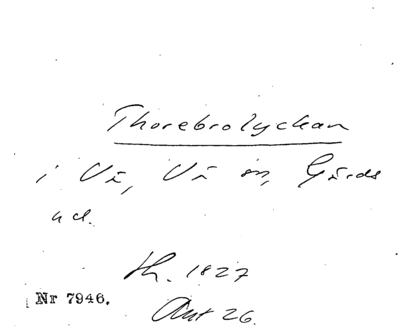 Thorebrolyckan
i Vä, Vä sn, Gärds
hd.
th. 1827
Nr 7946.
Aut 26.